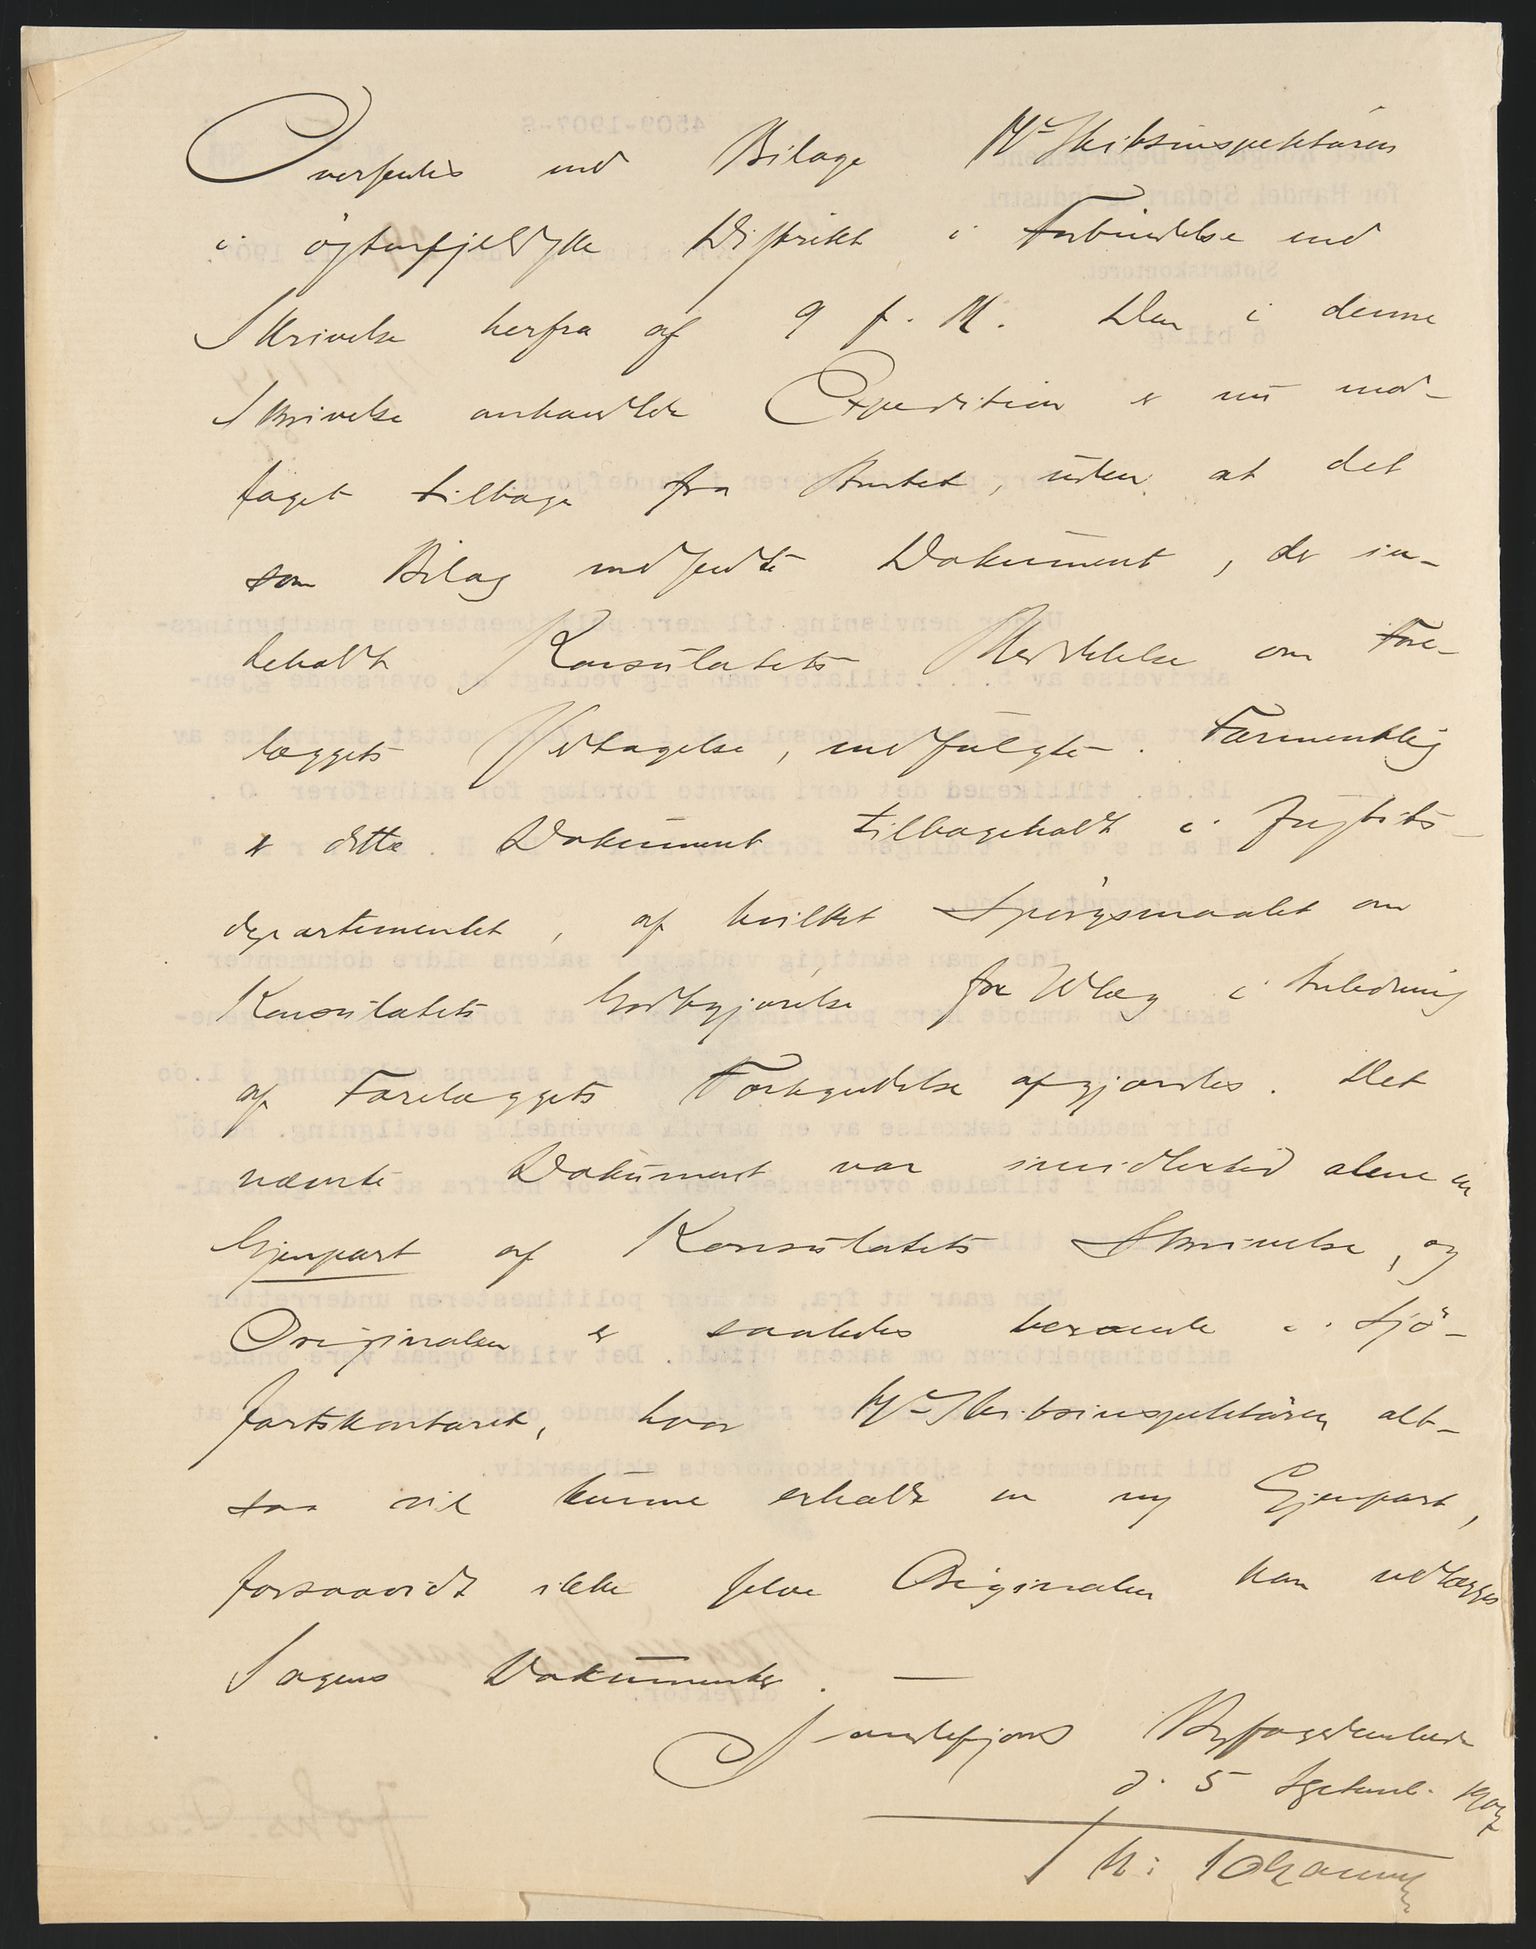 Oversendes med Bilage Hr Skibsinspektören
i östenfjeldske Distrikt i Forbindelse med
Skrivelse herfra af 9 f. M. Den i denne
Skrivelse omhandlede Expedition er nu mod-
taget tilbage fra Amtet, uden at det
som Bilag medsendte Dokument, der in-
deholdt Konsulatets Meddelelse om Fore-
læggets Vedtagelse, medfulgte. Formentlig
er dette Dokument tilbageholdt i Justits-
departementet, af hvilket Spörgsmaalet om
Konsulatets Godtgjörelse for Udlæg i Anledning
af Forelæggets Forkyndelse afgjordes. Det
nævnte Dokument var imidlertid alene en
Gjenpart af Konsulatets Skrivelse, og
Originalen er saaledes beroende i Sjö-
fartskontoret, hvor Hr Skibsinspektören alt-
saa vil kunne erholde en ny Gjenpart,
forsaavidt ikke selve Originalen kan vedlægges
Sagens Dokumenter. —
Sandefjord Byfogedembede
d. 5 Septemb. 1907